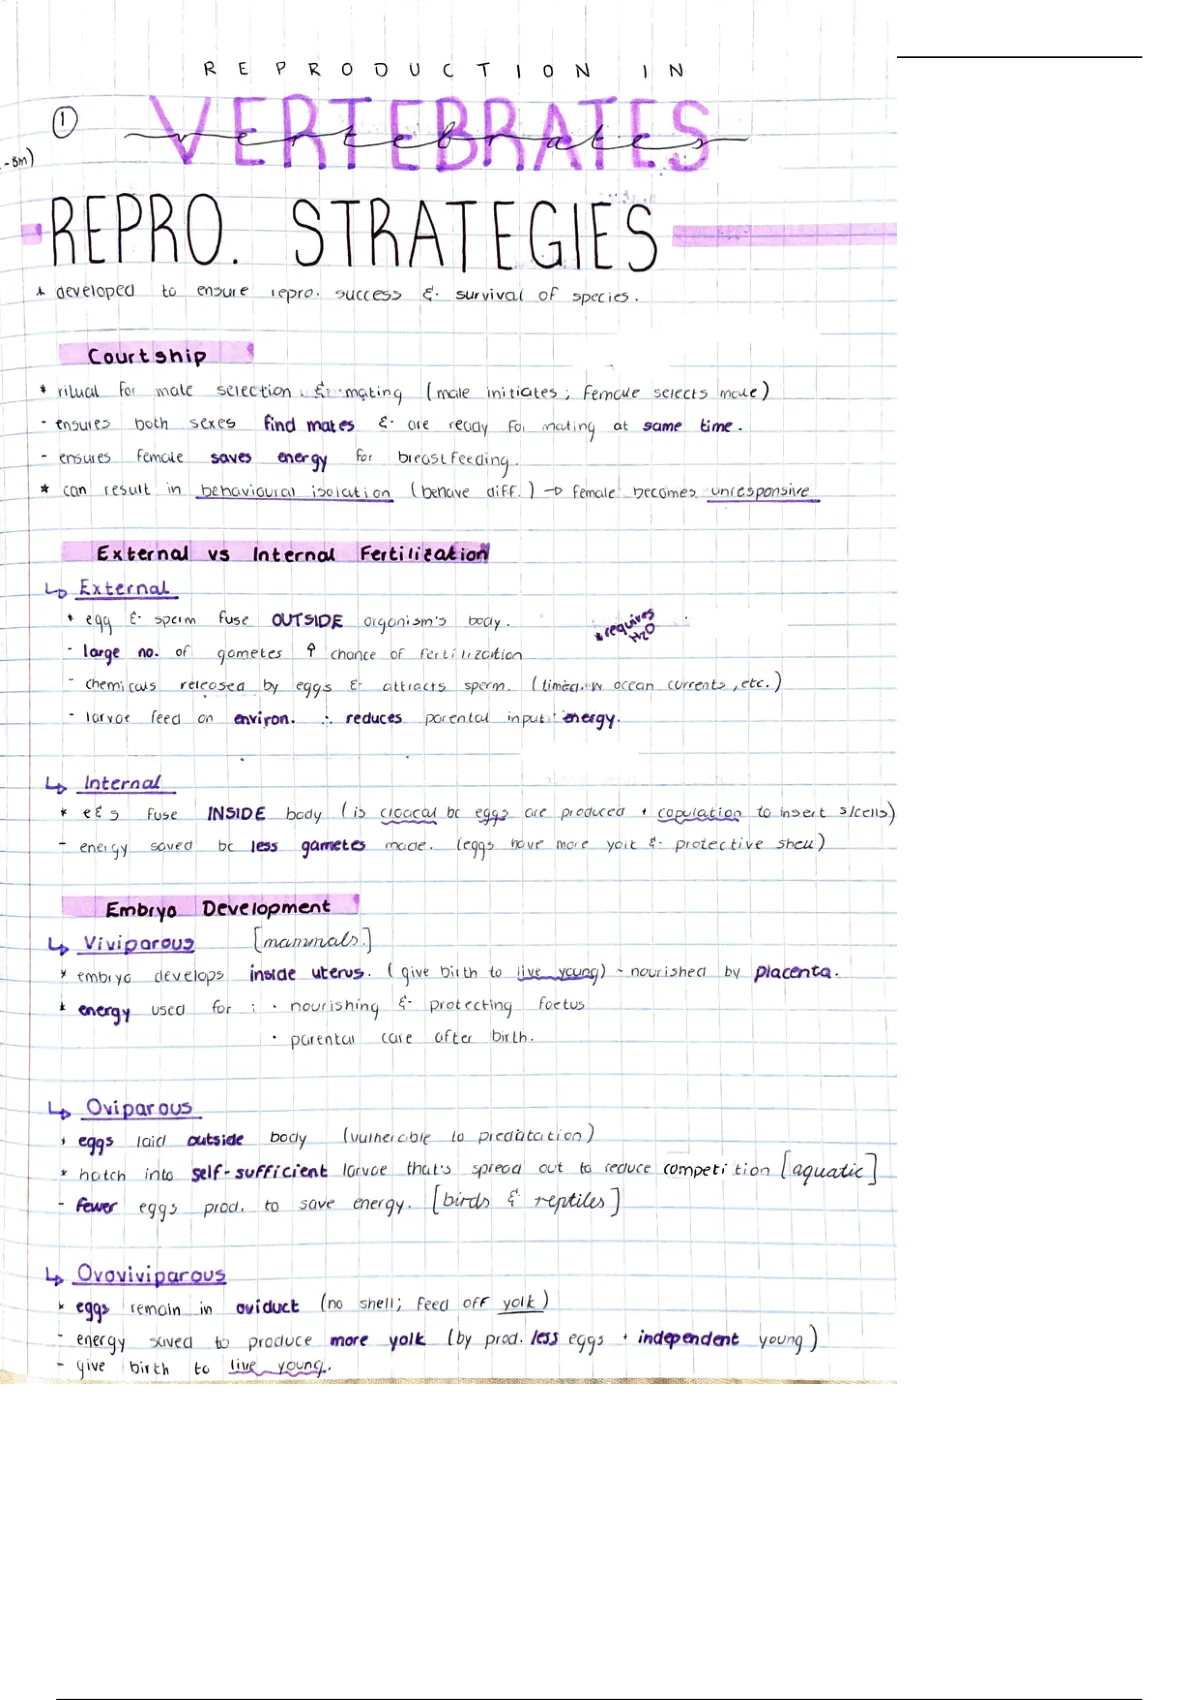 REPRODUCTION IN
①
VERTEBRATES
vertebrates
-8m)
REPRO. STRATEGIES
* developed to ensure repro. success & survival of species.
Courtship
* ritual for male selection & mating (male initiates; female selects male)
- ensures both sexes find mates & are ready for mating at same time.
- ensures female saves energy for breastfeeding.
* can result in behavioural isolation (behave diff.) → female becomes unresponsive
External vs Internal Fertilization
↳ External
* egg & sperm fuse OUTSIDE organism's body.
* requires H2O
- large no. of gametes ↑ chance of fertilization
- chemicals released by eggs & attracts sperm. (timed w ocean currents, etc.)
- larvae feed on environ. ∴ reduces parental input energy.
↳ Internal
* e & s fuse INSIDE body (is cloacal bc eggs are produced + copulation to insert s/cells)
- energy saved bc less gametes made. (eggs have more yolk & protective shell)
Embryo Development
↳ Viviparous [mammals.]
* embryo develops inside uterus. (give birth to live young) - nourished by placenta.
* energy used for : • nourishing & protecting foetus
• parental care after birth.
↳ Oviparous
* eggs laid outside body (vulnerable to predatation)
* hatch into self-sufficient larvae that's spread out to reduce competition [aquatic]
- fewer eggs prod. to save energy. [birds & reptiles]
↳ Ovoviviparous
* eggs remain in oviduct (no shell; feed off yolk)
- energy saved to produce more yolk (by prod. less eggs + independent young)
- give birth to live young.